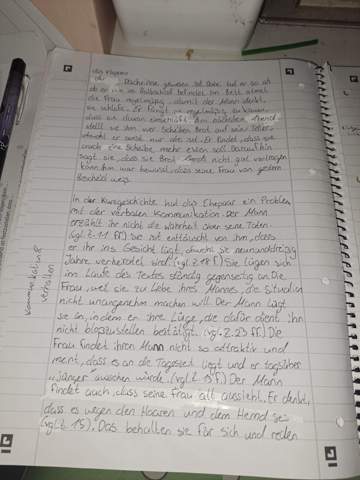 das Ehepaar
der Nachmittag gewesen ist. Dabei tut er so als
ob er im im Halbschlaf befindet. Im Bett atmet
die Frau regelmäßig, damit der Mann denkt,
sie schläft. Er fängt regelmäßig zu kauen,
dass sie davon einschläft. Am nächsten Abend
stellt sie ihm vier Scheiben Brot auf sein Teller,
obwohl er sonst nur drei isst. Er findet, dass sie
auch eine Scheibe mehr essen soll. Daraufhin
sagt sie, dass sie Brot Abends nicht gut vertragen
kann. Ihm war bewusst, dass seine Frau von gestern
Bescheid weiß.
In der Kurzgeschichte hat das Ehepaar ein Problem
mit der verbalen Kommunikation. Der Mann
erzählt ihr nicht die Wahrheit über seine Taten.
Sie ist enttäuscht von ihm, dass
er ihr ins Gesicht lügt, obwohl sie neununddreißig
Jahre verheiratet sind (vgl. Z. 18 f.) Sie lügen sich
im Laufe des Textes ständig gegenseitig an. Die
Frau, weil sie zu Liebe ihres Mannes, die Situation
nicht unangenehm machen will. Der Mann lügt
sie an, in dem er ihre Lüge, die dafür dient ihn
nicht bloßzustellen bestätigt. (vgl. Z. 23 ff.) Die
Frau findet ihren Mann nicht so attraktiv und
meint, dass es an die Tageszeit liegt und er tagsüber
„jünger" aussehen würde. Der Mann
findet auch, dass seine Frau alt aussieht. Er denkt,
dass es wegen den Haaren und dem Hemd sei
(vgl. Z. 15). Das behalten sie für sich und reden
Kommunikation
verhalten